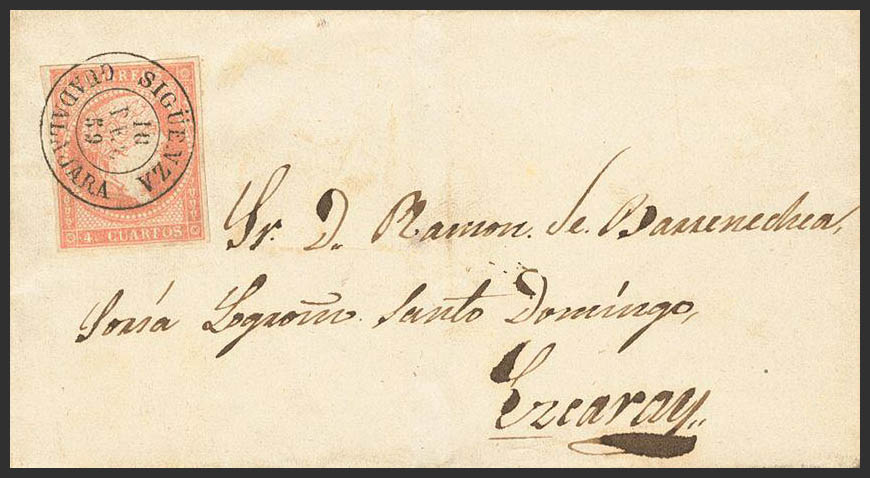 CORREOS
SIGÜENZA
GUADALAJARA
18
FEB
59
4. CUARTOS
Sr. D. Ramon. de. Barrenechea,
Soria Logroñ. Santo Domingo,
Ezcaray,,